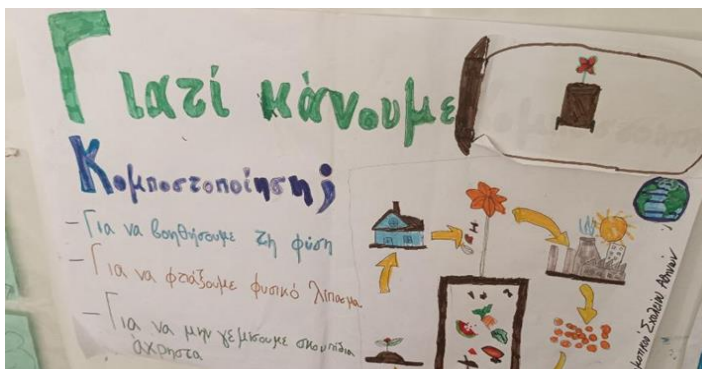 Γιατί κάνουμε
Κομποστοποίηση;
- Για να βοηθήσουμε τη φύση
- Για να φτιάξουμε φυσικό λίπασμα
- Για να μην γεμίσουμε σκουπίδια
άχρηστα
Σχολείου Αθηνών